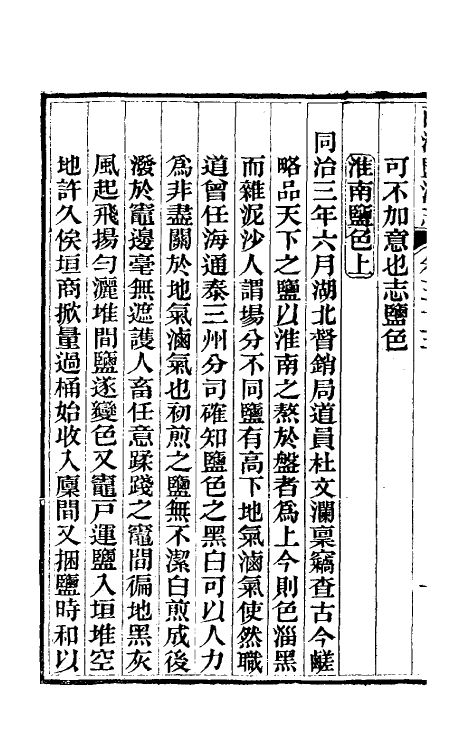 可不加意也志鹽色
淮南鹽色上
同治三年六月湖北督銷局道員杜文瀾稟竊查古今鹺
略品天下之鹽以淮南之熬於盤者爲上今則色淄黑
而雜泥沙人謂場分不同鹽有高下地氣滷氣使然職
道曾任海通泰三州分司確知鹽色之黑白可以人力
爲非盡關於地氣滷氣也初煎之鹽無不潔白煎成後
潑於竈邊毫無遮護人畜任意蹂踐之竈間徧地黑灰
風起飛揚勻灑堆間鹽遂變色又竈戸運鹽入垣堆空
地許久俟垣商掀量過桶始收入廩間又捆鹽時和以